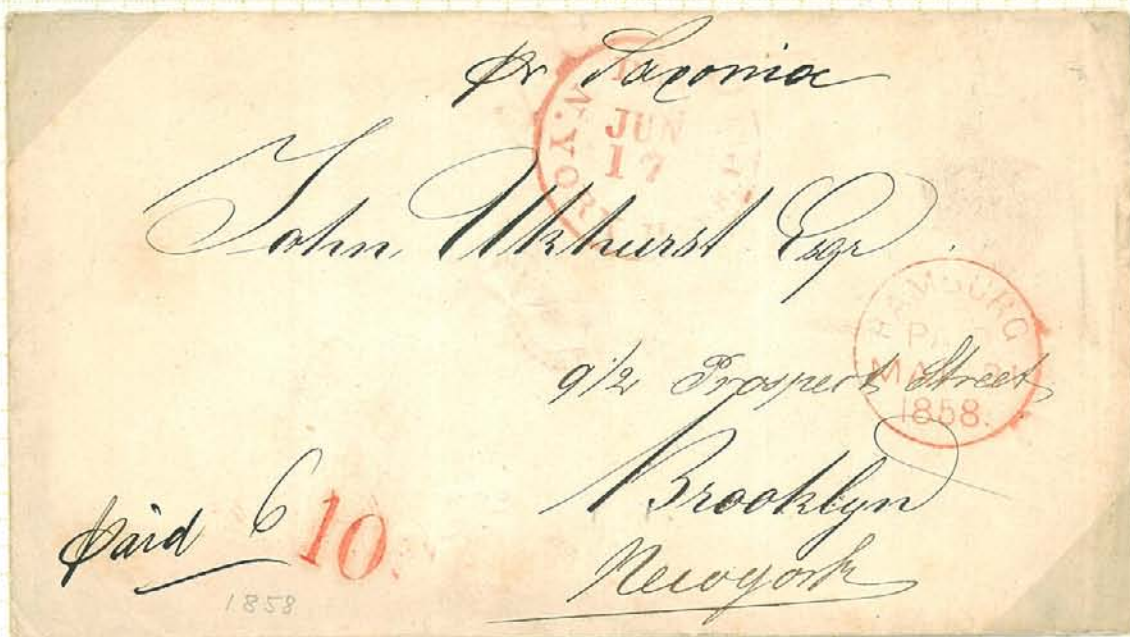 pr Saxonia
JUN
17
John Akhurst Esqr
HAMBURG
PAID
MAY 31
1858.
9 1/2 Prospect Street
Brooklyn
Newyork
paid 6
10
1858